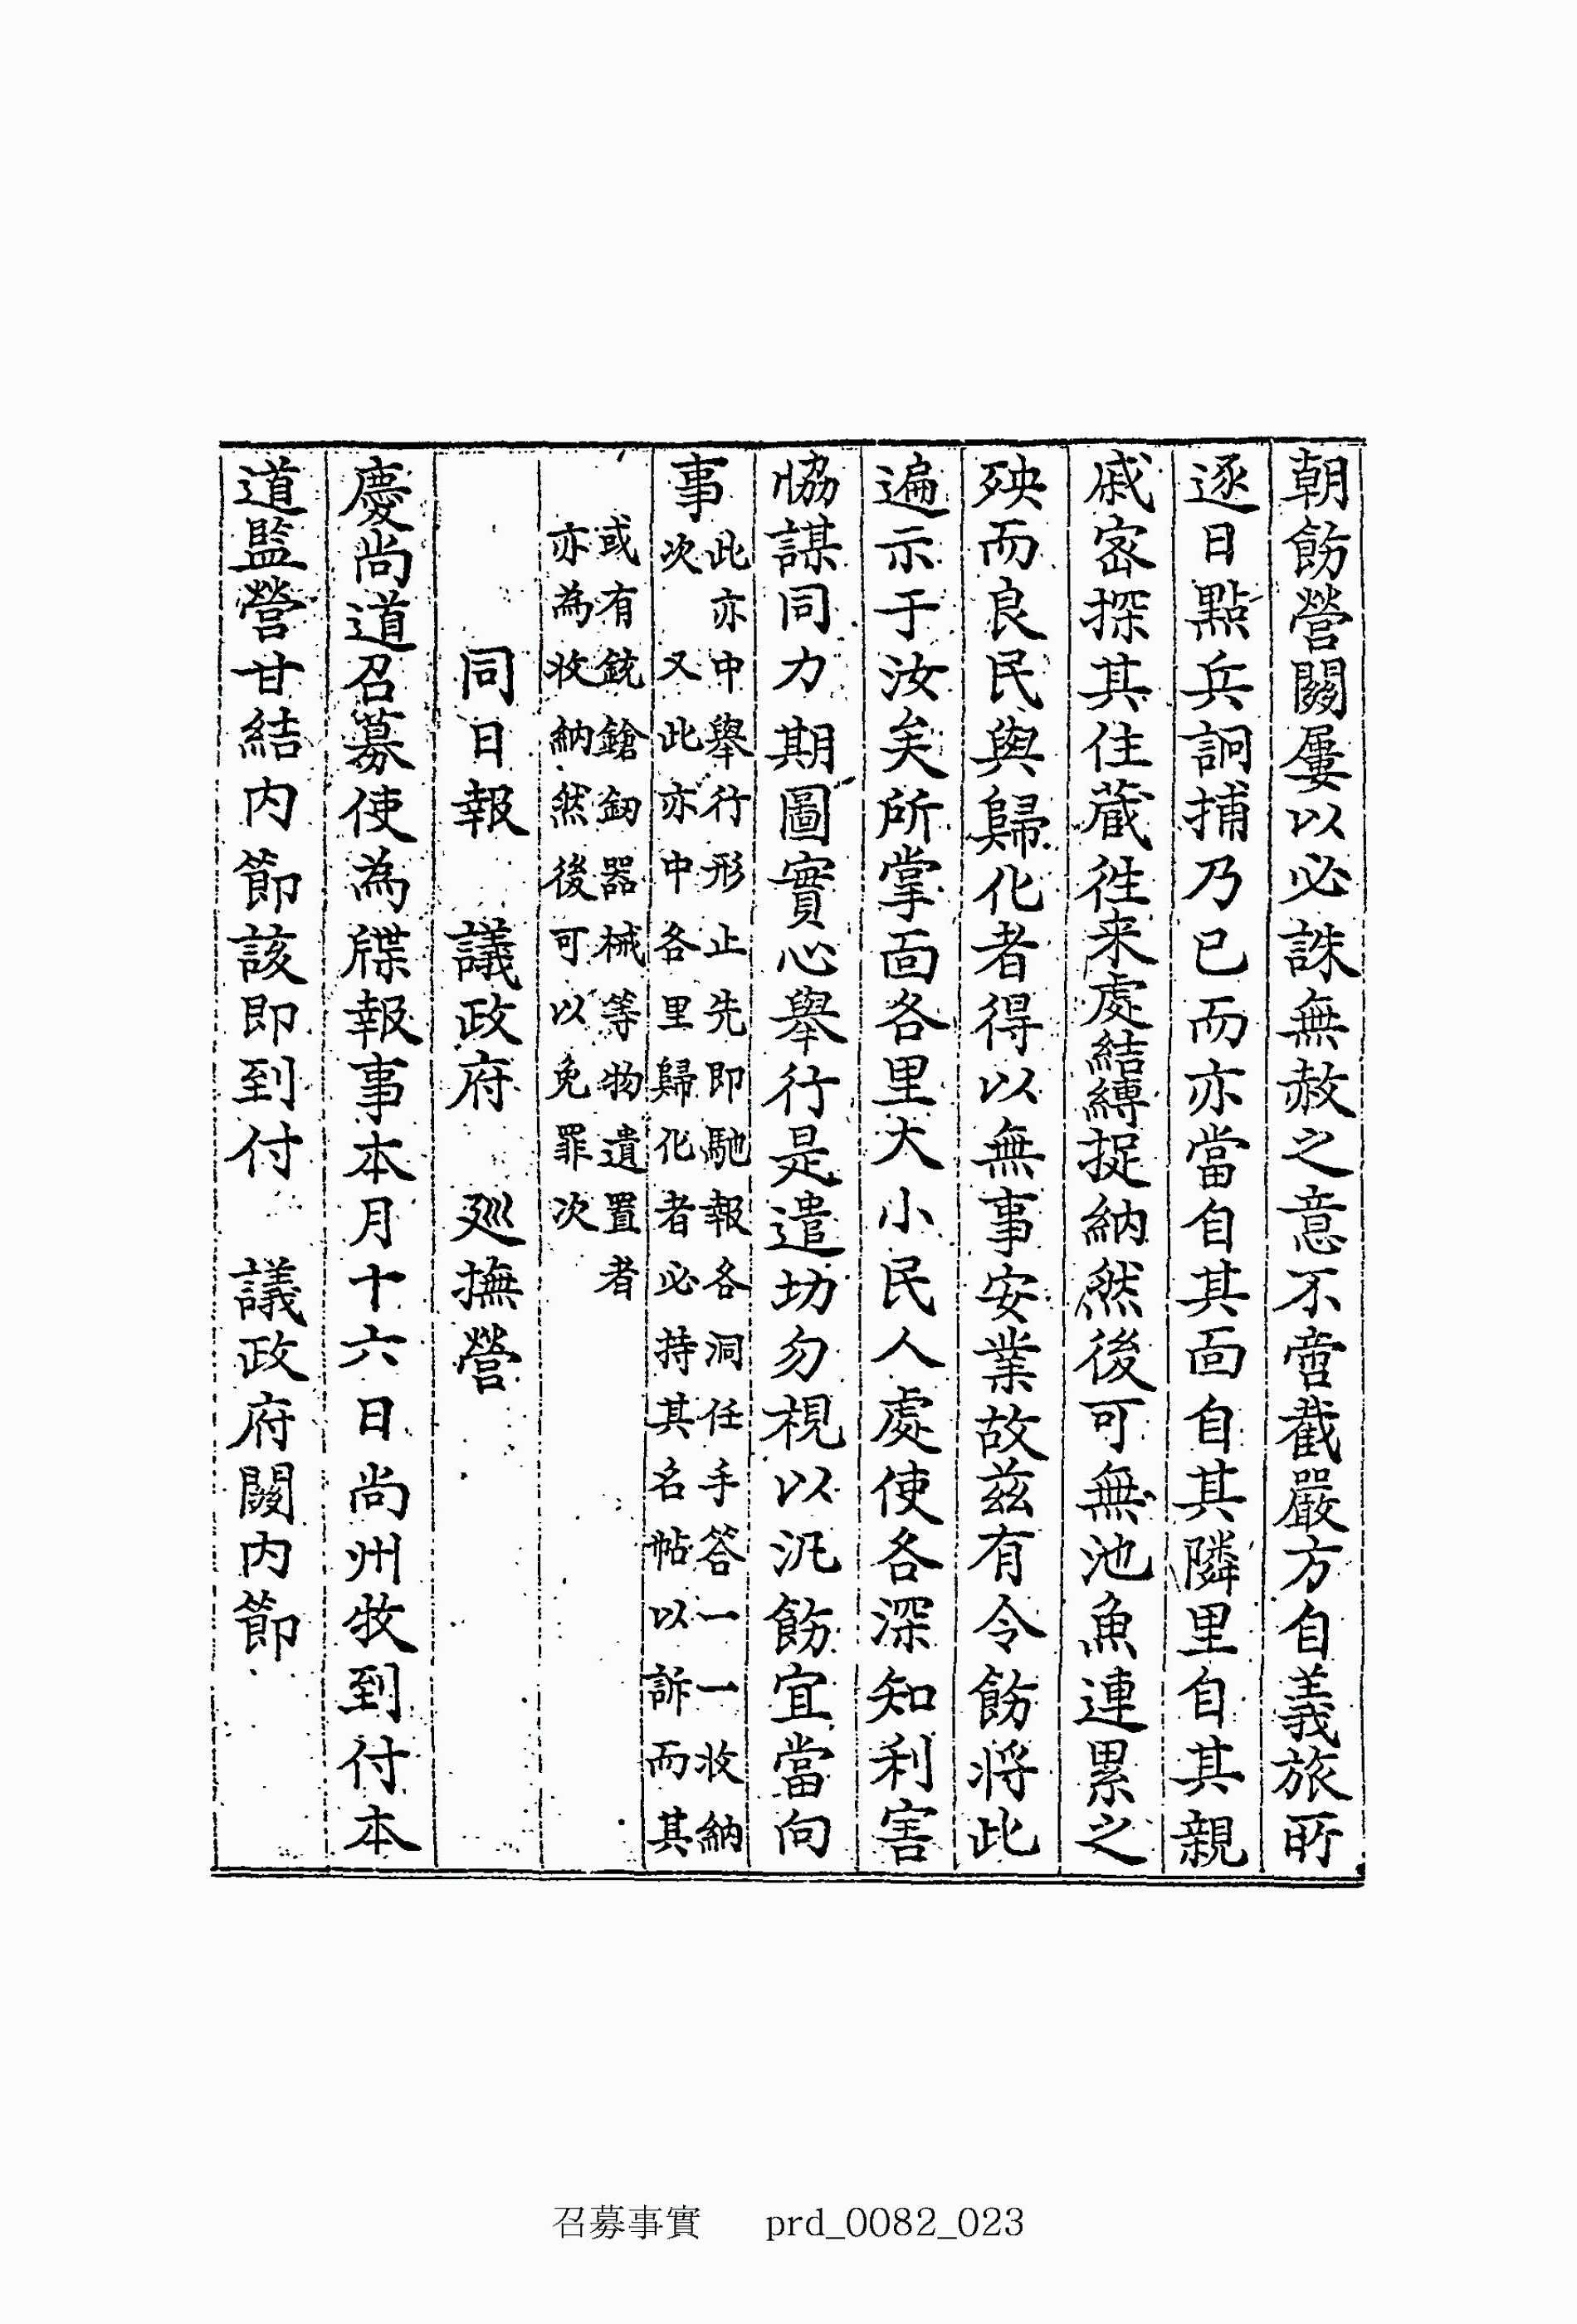 朝飭營關屢以必誅無赦之意不啻截嚴方自義旅所
逐日點兵詗捕乃已而亦當自其面自其隣里自其親
戚密探其住蔵徃来處結縛捉納然後可無池魚連累之
殃而良民與歸化者得以無事安業故茲有令飭将此
遍示于汝矣所掌面各里大小民人處使各深知利害
恊謀同力期圖實心舉行是遣切勿視以汎飭宜當向
事
此亦中舉行形止先即馳報各洞任手答一一收納
次 又此亦中各里歸化者必持其名帖以訴而其
或有銃鎗釰器械等物遺置者
亦為收納然後可以免罪次
同日報 議政府 廵撫營
慶尚道召募使為牒報事本月十六日尚州牧到付本
道監營甘結内節該即到付 議政府關内節
召募事實 prd_0082_023